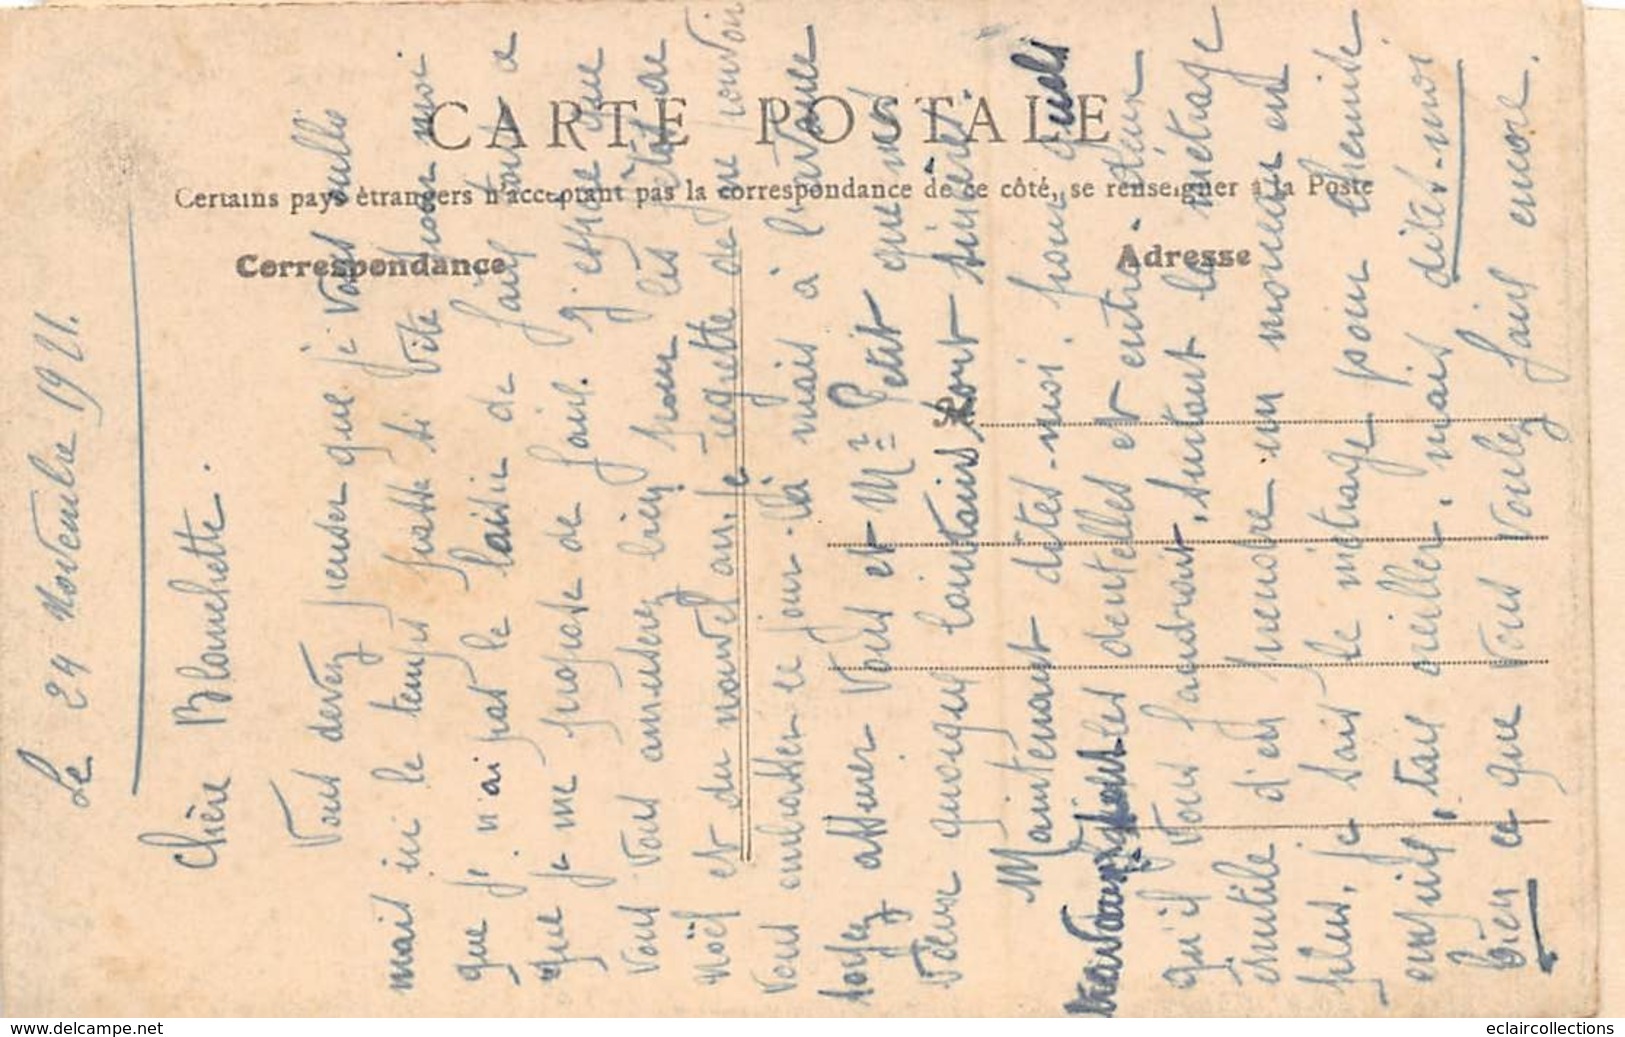 CARTE POSTALE
Certains pays étrangers n'acceptent pas la correspondance de ce côté, se renseigner à la Poste
Correspondance
Adresse
Le 24 Novembre 1921.
Chère Blanchette.
Vous devez penser que je vous oublie
mais ici le temps passe si vite pour moi
que je n'ai pas le loisir de faire tout ce
que je me propose de faire. J'espère que
vous vous amuserez bien pour les fêtes de
Noël et du nouvel an. Je regrette de ne pouvoir
vous embrasser ce jour-là mais à l'avance
soyez assurés vous et Mr Petit que mes
vœux quoique lointains sont sincères.
Maintenant dites-moi pour quels
les dentelles et entre-deux
qu'il vous faudrait, surtout le métrage
inutile d'en prendre un morceau en
plus, je sais le métrage pour chemise
ensuite, taie oreiller, mais dites-moi
bien ce que vous voulez faire encore.
www.delcampe.net
eclaircollections